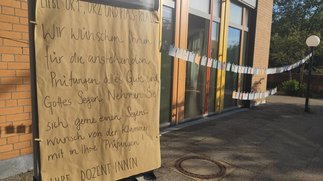 Wir wünschen Ihnen
für die anstehenden
Prüfungen alles Gute und
Gottes Segen. Nehmen Sie
sich gerne einen Segens
wunsch von der Klammer
mit in Ihre Prüfung
IHRE DOZENT*INNEN